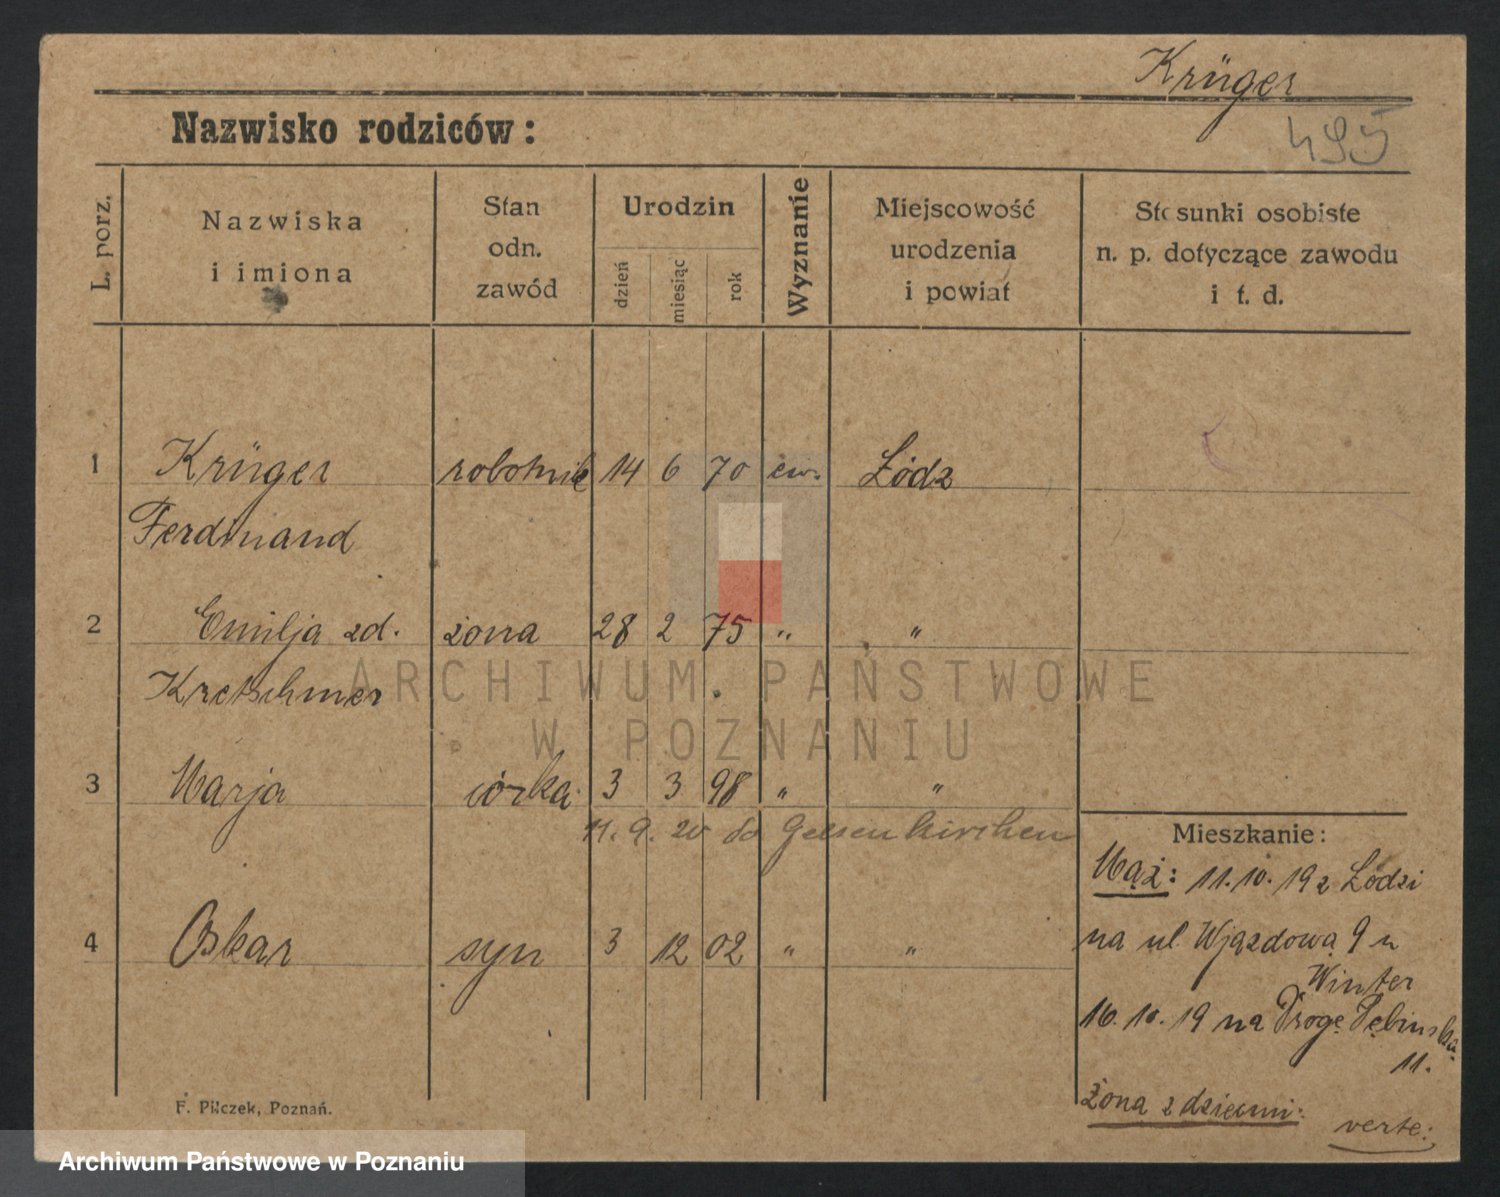 Krüger
Nazwisko rodziców:
495
L. porz.
Nazwiska
i imiona
Stan
odn.
zawód
Urodzin
dzień
miesiąc
rok
Wyznanie
Miejscowość
urodzenia
i powiat
Stosunki osobiste
n. p. dotyczące zawodu
i t. d.
1 Krüger robotnik 14 6 70 ew. Łódz
Ferdinand
2 Emilja zd. żona 28 2 75 " "
Kretschmer
ARCHIWUM PAŃSTWOWE
W POZNANIU
3 Marja córka 3 3 98 " "
11. 9. 20 do Gelsenkirchen
Mieszkanie:
Mąż: 11. 10. 19 z Łódzi
4 Oskar syn 3 12 02 " "
na ul. Wjazdowa 9 u
Winter
16. 10. 19 na Drogę
11.
Żona z dziećmi:
verte:
F. Pilczek, Poznań.
Archiwum Państwowe w Poznaniu